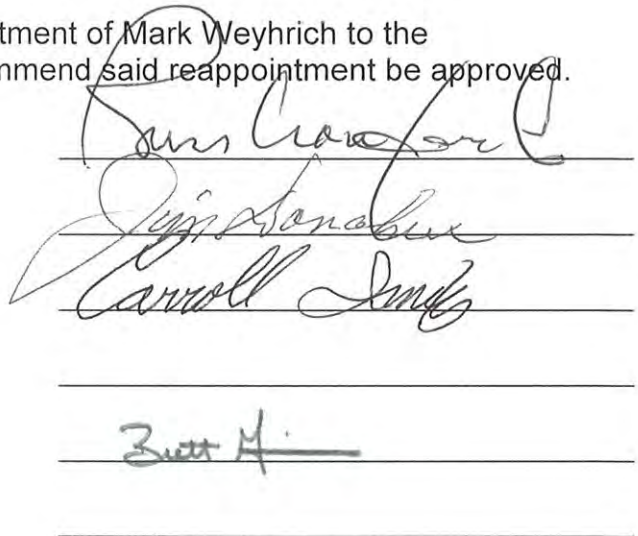 tment of Mark Weyhrich to the
mmend said reappointment be approved.
Russ Crawford
Jim Donahue
Carroll
Brett